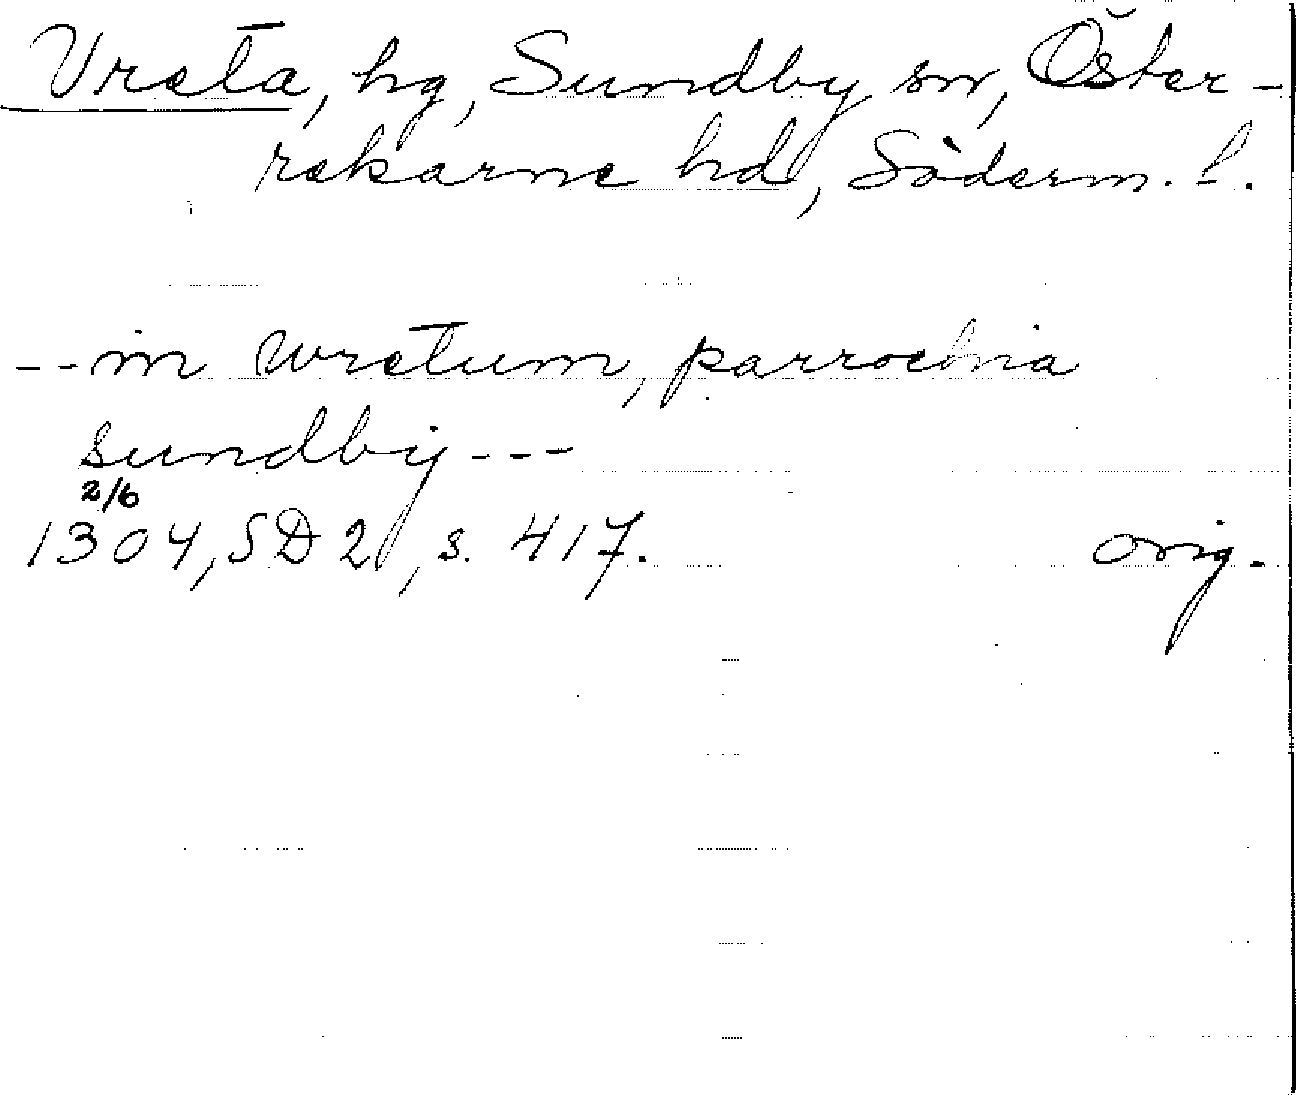 Vreta, hg, Sundby sn, Öster-
rekarne hd, Söderm. l.
--in wretum, parrochia
sundby---
2/6
1304, SD 2, s. 417. orig.